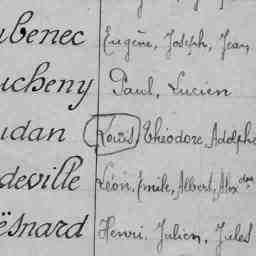 ubenec Eugène, Joseph, Jean
ucheny Paul, Lucien
udan Louis, Théodore, Adolphe
deville Léon, Emile, Albert, Alex dre
ësnard Henri, Julien, Jules